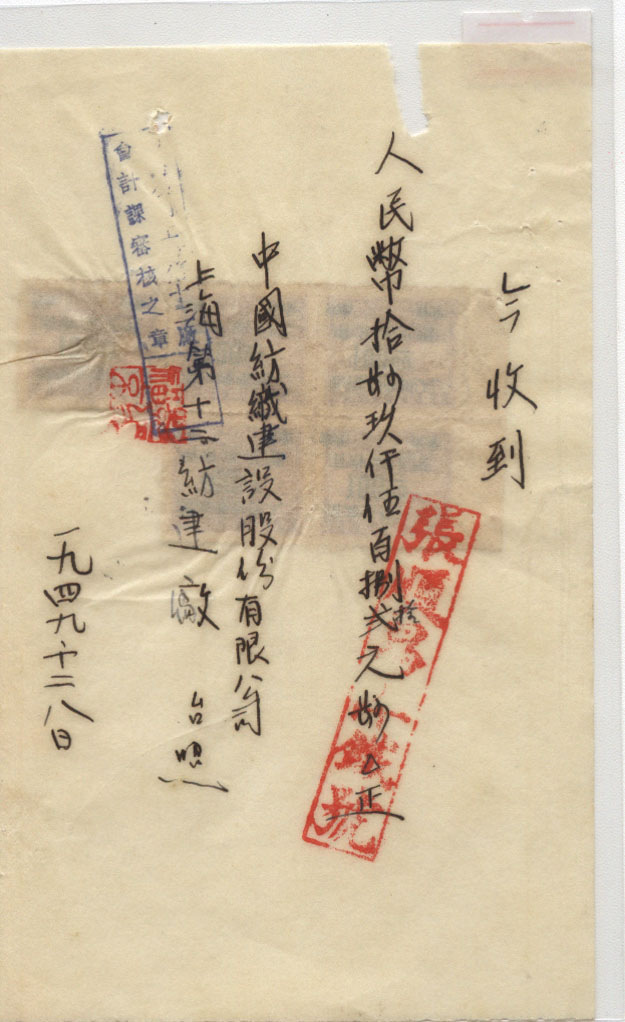 今收到
人民幣拾萬玖仟伍百捌拾弍元正
張 號
中國紡織建設股份有限公司
上海第十二紡建廠 台照
會計課審核之章
一九四九.十二.八日